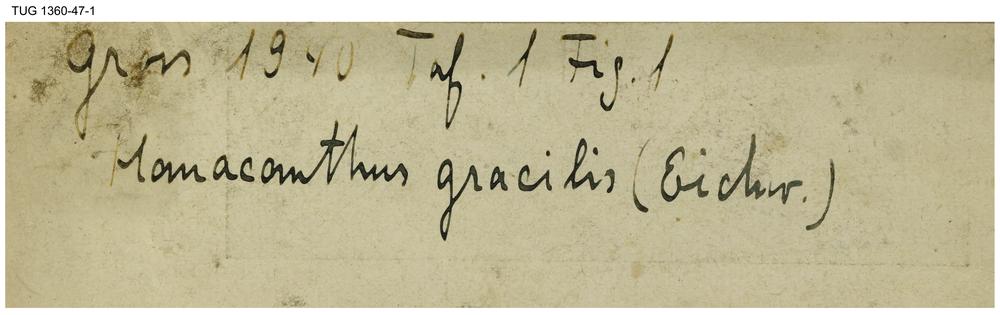 TUG 1360-47-1
Gross 1940 Taf. 1 Fig. 1
Homacanthus gracilis (Eichw.)